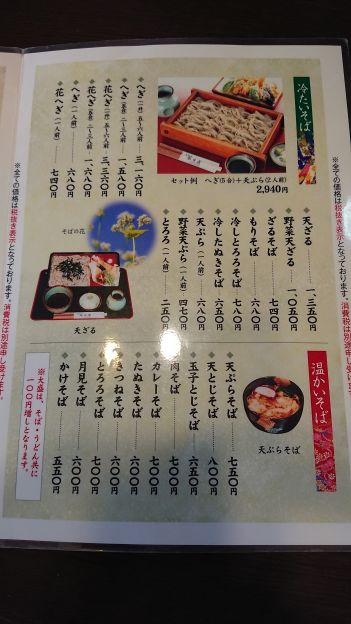 冷たいそば
へぎ（一升）五〜六人前 三、一六〇円
へぎ（五合）二〜三人前 一、五八〇円
花へぎ（一升）五〜六人前 三、三六〇円
花へぎ（五合）二〜三人前 一、六八〇円
へぎ（一人前） 六八〇円
花へぎ（一人前） 七四〇円
セット例 へぎ(5合)＋天ぷら(2人前)
2,940円
天ざる 一、三五〇円
野菜天ざる 一、〇五〇円
ざるそば 七四〇円
もりそば 六八〇円
冷しとろろそば 七八〇円
冷したぬきそば 六五〇円
天ぷら（一人前） 六八〇円
野菜天ぷら（一人前） 四七〇円
とろろ（一人前） 二五〇円
そばの花
天ざる
温かいそば
天ぷらそば
天ぷらそば 七五〇円
天とじそば 八〇〇円
玉子とじそば 六〇〇円
肉そば 七〇〇円
カレーそば 七〇〇円
たぬきそば 六〇〇円
きつねそば 六〇〇円
とろろそば 七〇〇円
月見そば 六〇〇円
かけそば 五五〇円
※大盛は、そば・うどん共に
一〇〇円増しとなります。
※全ての価格は税抜き表示となっております。消費税は別途申し受けます。
※全ての価格は税抜き表示となっております。消費税は別途申し受けます。